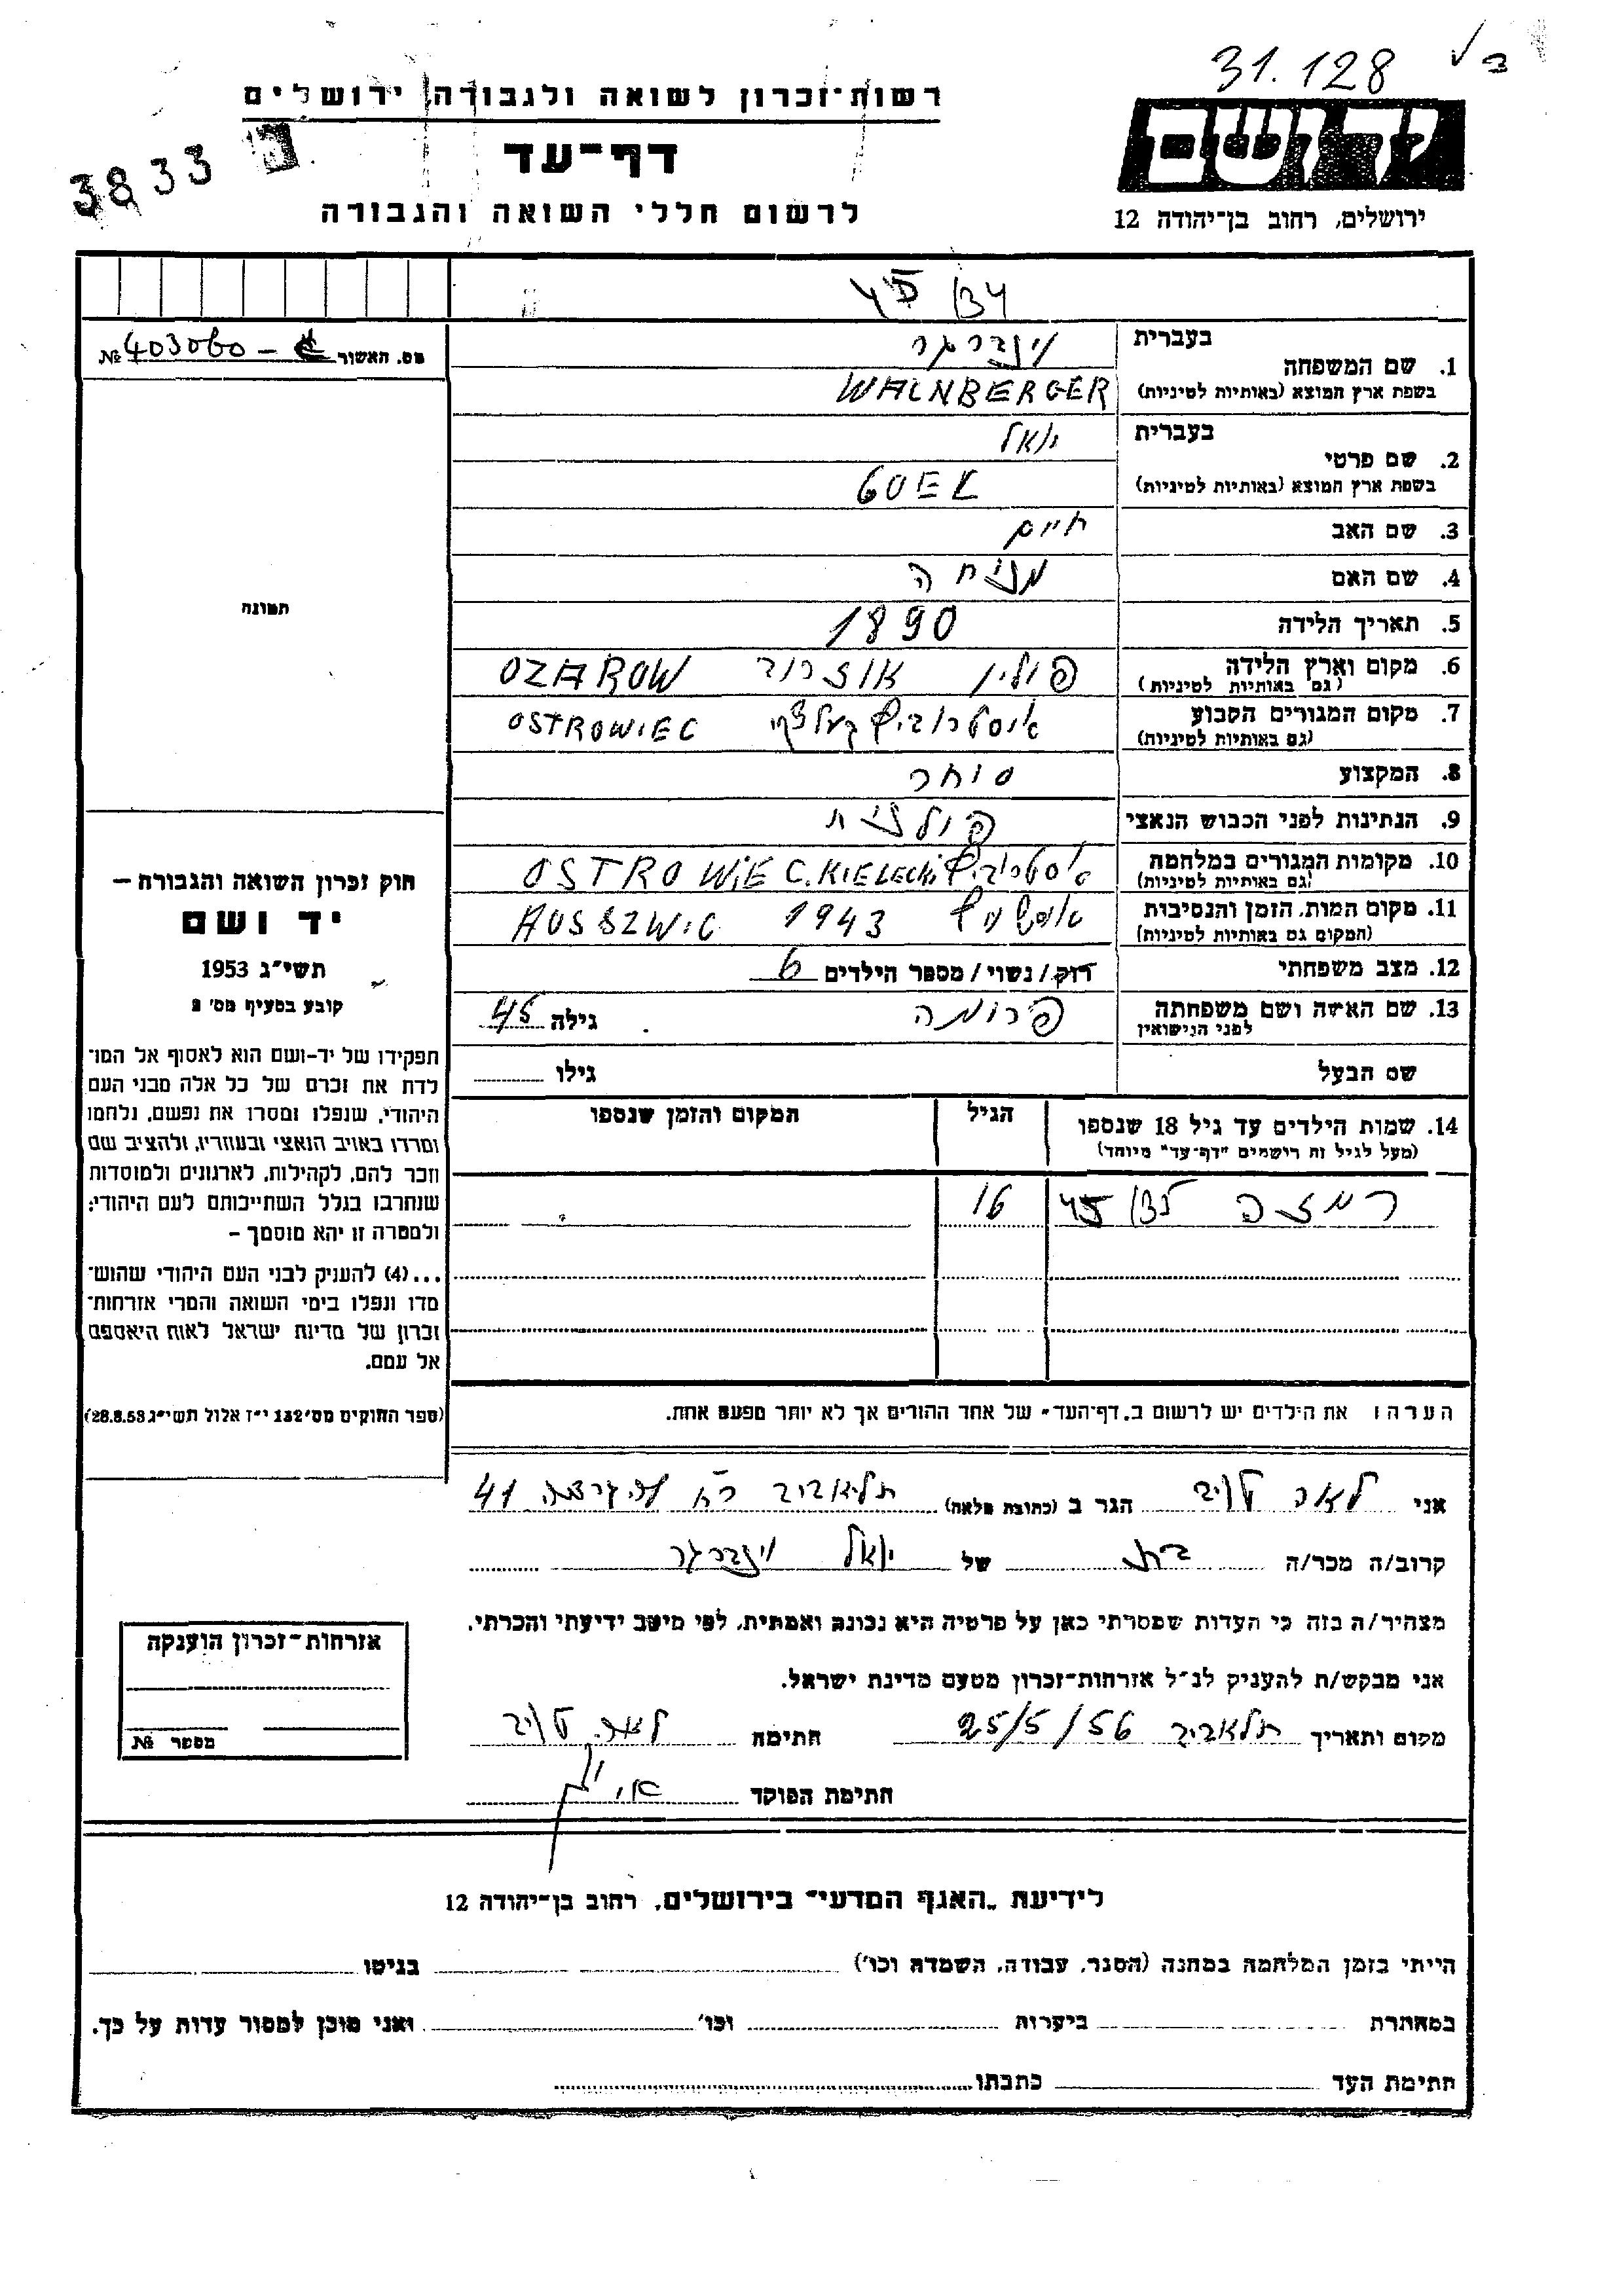 31.128
רשות־זכרון לשואה ולגבורה, ירושלים
דף־עד
לרשום חללי השואה והגבורה
3833
ידושם
ירושלים, רחוב בן־יהודה 12
מס. האשור 403060 №
1. שם המשפחה
בעברית וינברגר
בשפת ארץ המוצא (באותיות לטיניות) WAINBERGER
2. שם פרטי
בעברית יואל
בשפת ארץ המוצא (באותיות לטיניות) GOEL
3. שם האב חיים
4. שם האם מניחה
5. תאריך הלידה 1890
6. מקום וארץ הלידה (גם באותיות לטיניות) פולין אוזרוב OZAROW
7. מקום המגורים הקבוע (גם באותיות לטיניות) OSTROWIEC
8. המקצוע סוחר
9. הנתינות לפני הכבוש הנאצי פולנית
10. מקומות המגורים במלחמה (גם באותיות לטיניות) אוסטרוביץ OSTROWIEC.KIELECKI
11. מקום המות, הזמן והנסיבות (המקום גם באותיות לטיניות) אושויץ 1943 AUSSZWIC
12. מצב משפחתי רוק/נשוי/מספר הילדים 6
13. שם האשה ושם משפחתה לפני הנישואין פרומה גילה 45
שם הבעל גילו
14. שמות הילדים עד גיל 18 שנספו הגיל המקום והזמן שנספו
(מעל לגיל זה רושמים "דף־עד" מיוחד)
רמזה 16
הערה: את הילדים יש לרשום ב„דף־העד" של אחד ההורים אך לא יותר מפעם אחת.
תמונה
חוק זכרון השואה והגבורה —
יד ושם
תשי"ג 1953
קובע בסעיף מס' 2
תפקידו של יד-ושם הוא לאסוף אל המו־
לדת את זכרם של כל אלה מבני העם
היהודי, שנפלו ומסרו את נפשם, נלחמו
ומרדו באויב הנאצי ובעוזריו, ולהציב שם
וזכר להם, לקהילות, לארגונים ולמוסדות
שנחרבו בגלל השתייכותם לעם היהודי;
ולמטרה זו יהא מוסמך —
...(4) להעניק לבני העם היהודי שהוש־
מדו ונפלו בימי השואה והמרי אזרחות־
זכרון של מדינת ישראל לאות היאספם
אל עמם.
(ספר החוקים מס' 132 י"ז אלול תשי"ג 28.8.53)
אני לאה הגר ב (כתובת מלאה) תל אביב 41
קרוב/ה מכר/ה בת של יואל וינברגר
מצהיר/ה בזה כי העדות שמסרתי כאן על פרטיה היא נכונה ואמתית, לפי מיטב ידיעתי והכרתי.
אני מבקש/ת להעניק לנ"ל אזרחות־זכרון מטעם מדינת ישראל.
מקום ותאריך תל אביב 25/5/56 חתימה לאה
חתימת הפוקד
אזרחות־זכרון הוענקה
מספר №
לידיעת „האגף המדעי" בירושלים, רחוב בן־יהודה 12
הייתי בזמן המלחמה במחנה (הסגר, עבודה, השמדה וכו') בגיטו
במחתרת ביערות וכו' ואני מוכן למסור עדות על כך.
חתימת העד כתבתו